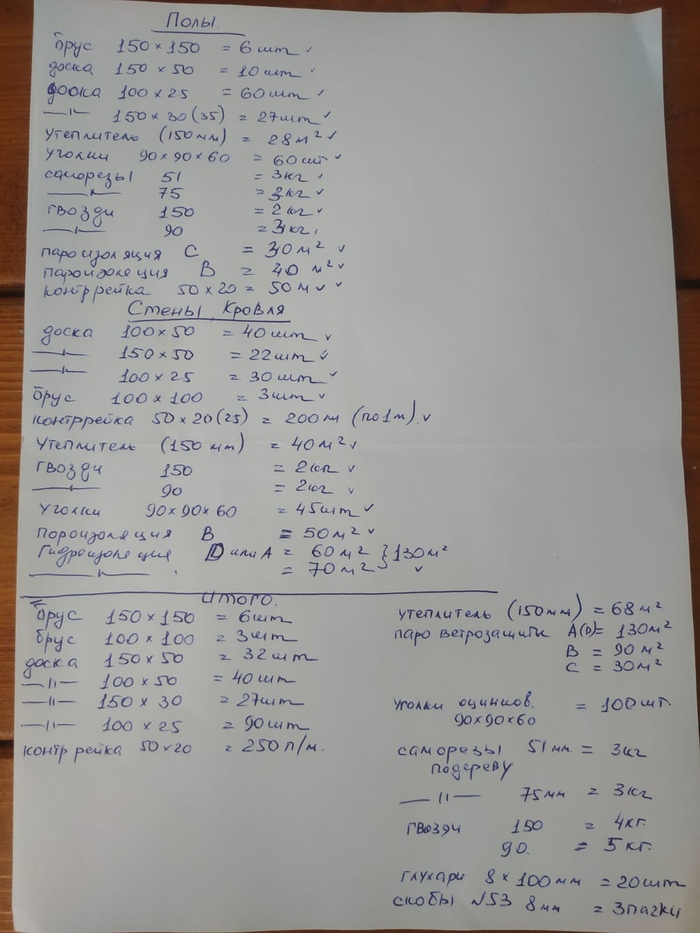 Полы.
брус 150×150 = 6 шт ✓
доска 150×50 = 10 шт ✓
доска 100×25 = 60 шт ✓
—"— 150×30(35) = 27 шт ✓
утеплитель (150 мм) = 28 м² ✓
уголки 90×90×60 = 60 шт ✓
саморезы 51 = 3 кг ✓
—"— 75 = 3 кг ✓
гвозди 150 = 2 кг ✓
—"— 90 = 3 кг ✓
пароизоляция С = 30 м² ✓
пароизоляция В = 40 м² ✓
контррейка 50×20 = 50 м ✓ ✓
Стены, Кровля
доска 100×50 = 40 шт ✓
—"— 150×50 = 22 шт ✓
—"— 100×25 = 30 шт ✓
брус 100×100 = 3 шт ✓
контррейка 50×20(25) = 200 м (по 1 м). ✓
утеплитель (150 мм) = 40 м² ✓
гвозди 150 = 2 кг ✓
—"— 90 = 2 кг ✓
уголки 90×90×60 = 45 шт ✓
Пороизоляция В = 50 м² ✓
Гидроизоляция D или А = 60 м² } 130 м²
—"— = 70 м² ✓
Итого.
брус 150×150 = 6 шт
брус 100×100 = 3 шт
доска 150×50 = 32 шт
—"— 100×50 = 40 шт
—"— 150×30 = 27 шт
—"— 100×25 = 90 шт
контррейка 50×20 = 250 п/м.
утеплитель (150 мм) = 68 м²
паро ветрозащиты А(D) = 130 м²
В = 90 м²
С = 30 м²
уголки оцинков. = 100 шт.
90×90×60
саморезы 51 мм = 3 кг
по дереву
—"— 75 мм = 3 кг
гвозди 150 = 4 кг.
90. = 5 кг.
глухари 8×100 мм = 20 шт
скобы №53 8 мм = 3 пачки